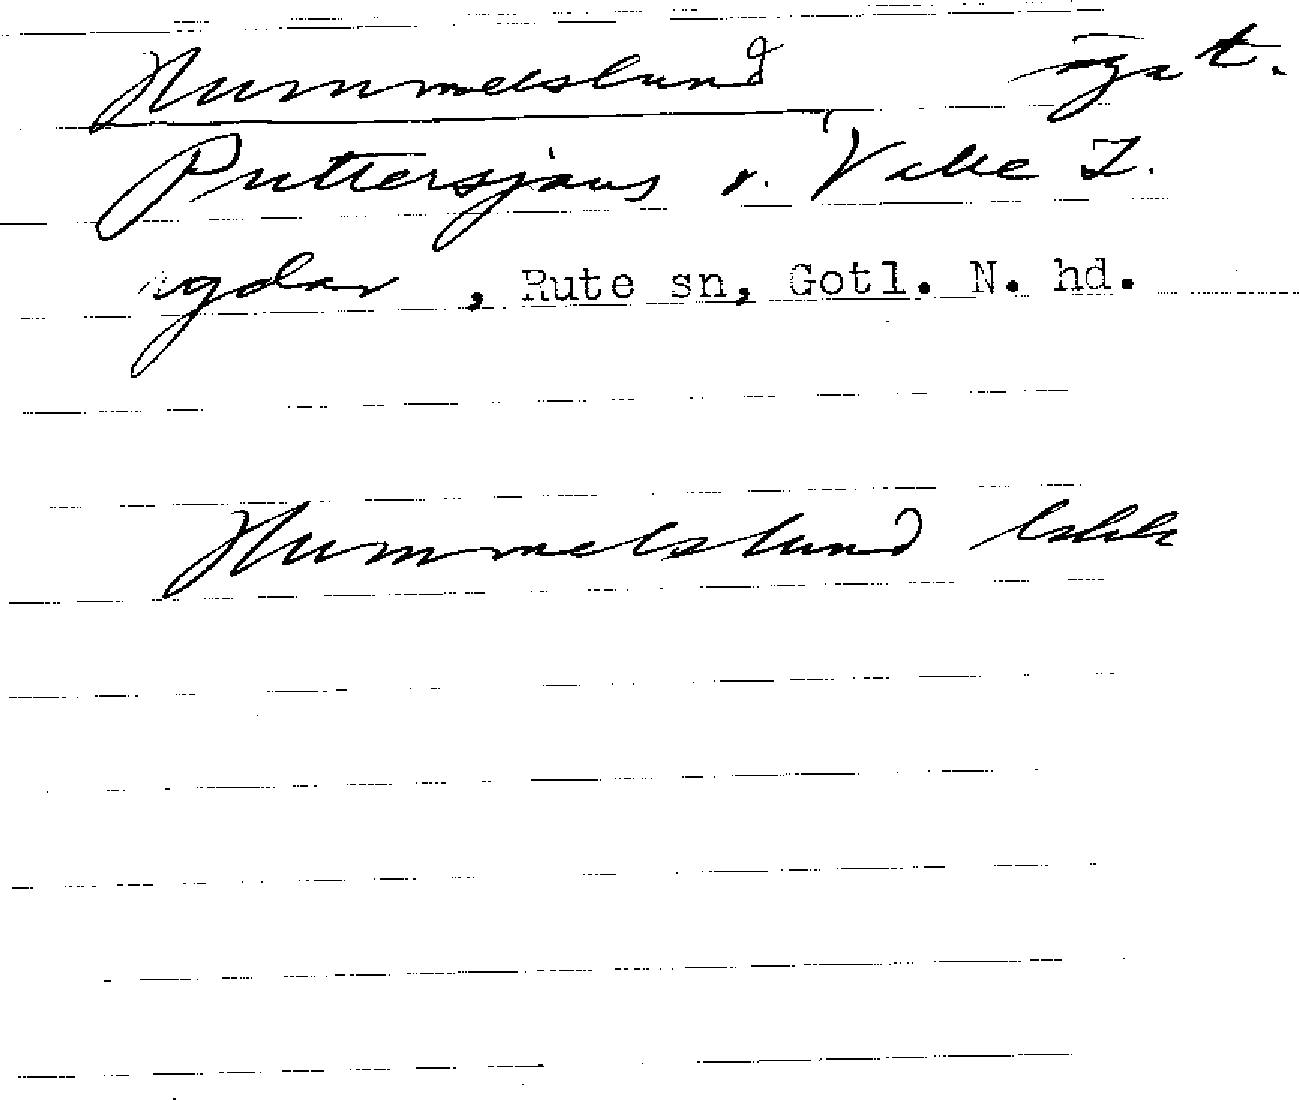 Hummelslund ägat.
Puttersjaus o. Valle I.
ägdor, Rute sn, Gotl. N. hd.
Hummelslund